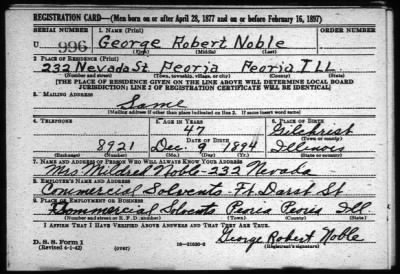 REGISTRATION CARD—(Men born on or after April 28, 1877 and on or before February 16, 1897)
SERIAL NUMBER 1. NAME (Print) ORDER NUMBER
U 996 George Robert Noble
(First) (Middle) (Last)
2. PLACE OF RESIDENCE (Print)
232 Nevada St Peoria Peoria ILL
(Number and street) (Town, township, village, or city) (County) (State)
[THE PLACE OF RESIDENCE GIVEN ON THE LINE ABOVE WILL DETERMINE LOCAL BOARD
JURISDICTION; LINE 2 OF REGISTRATION CERTIFICATE WILL BE IDENTICAL]
3. MAILING ADDRESS
Same
[Mailing address if other than place indicated on line 2. If same insert word same]
4. TELEPHONE 5. AGE IN YEARS 6. PLACE OF BIRTH
47 Gilchrist
DATE OF BIRTH (Town or county)
8921 Dec. 9 1894 Illinois
(Exchange) (Number) (Mo.) (Day) (Yr.) (State or country)
7. NAME AND ADDRESS OF PERSON WHO WILL ALWAYS KNOW YOUR ADDRESS
Mrs. Mildred Noble-232 Nevada
8. EMPLOYER'S NAME AND ADDRESS
Commercial Solvents-Ft. Darst St
9. PLACE OF EMPLOYMENT OR BUSINESS
Commercial Solvents Peoria Peoria Ill
(Number and street or R. F. D. number) (Town) (County) (State)
I AFFIRM THAT I HAVE VERIFIED ABOVE ANSWERS AND THAT THEY ARE TRUE.
D. S. S. Form 1
(Revised 4-1-42) (over) 16—21630-2 George Robert Noble
(Registrant's signature)